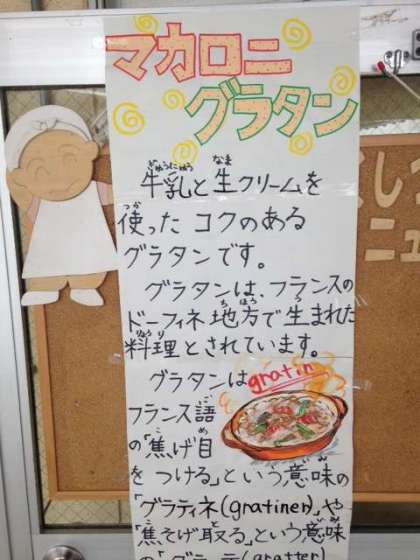 マカロニ
グラタン
牛乳と生クリームを
使ったコクのある
グラタンです。
グラタンは、フランスの
ドーフィネ地方で生まれた
料理とされています。
グラタンはgratin
フランス語
の「焦げ目
をつける」という意味の
「グラティネ(gratiner)」や
「焦そげ取る」という意味